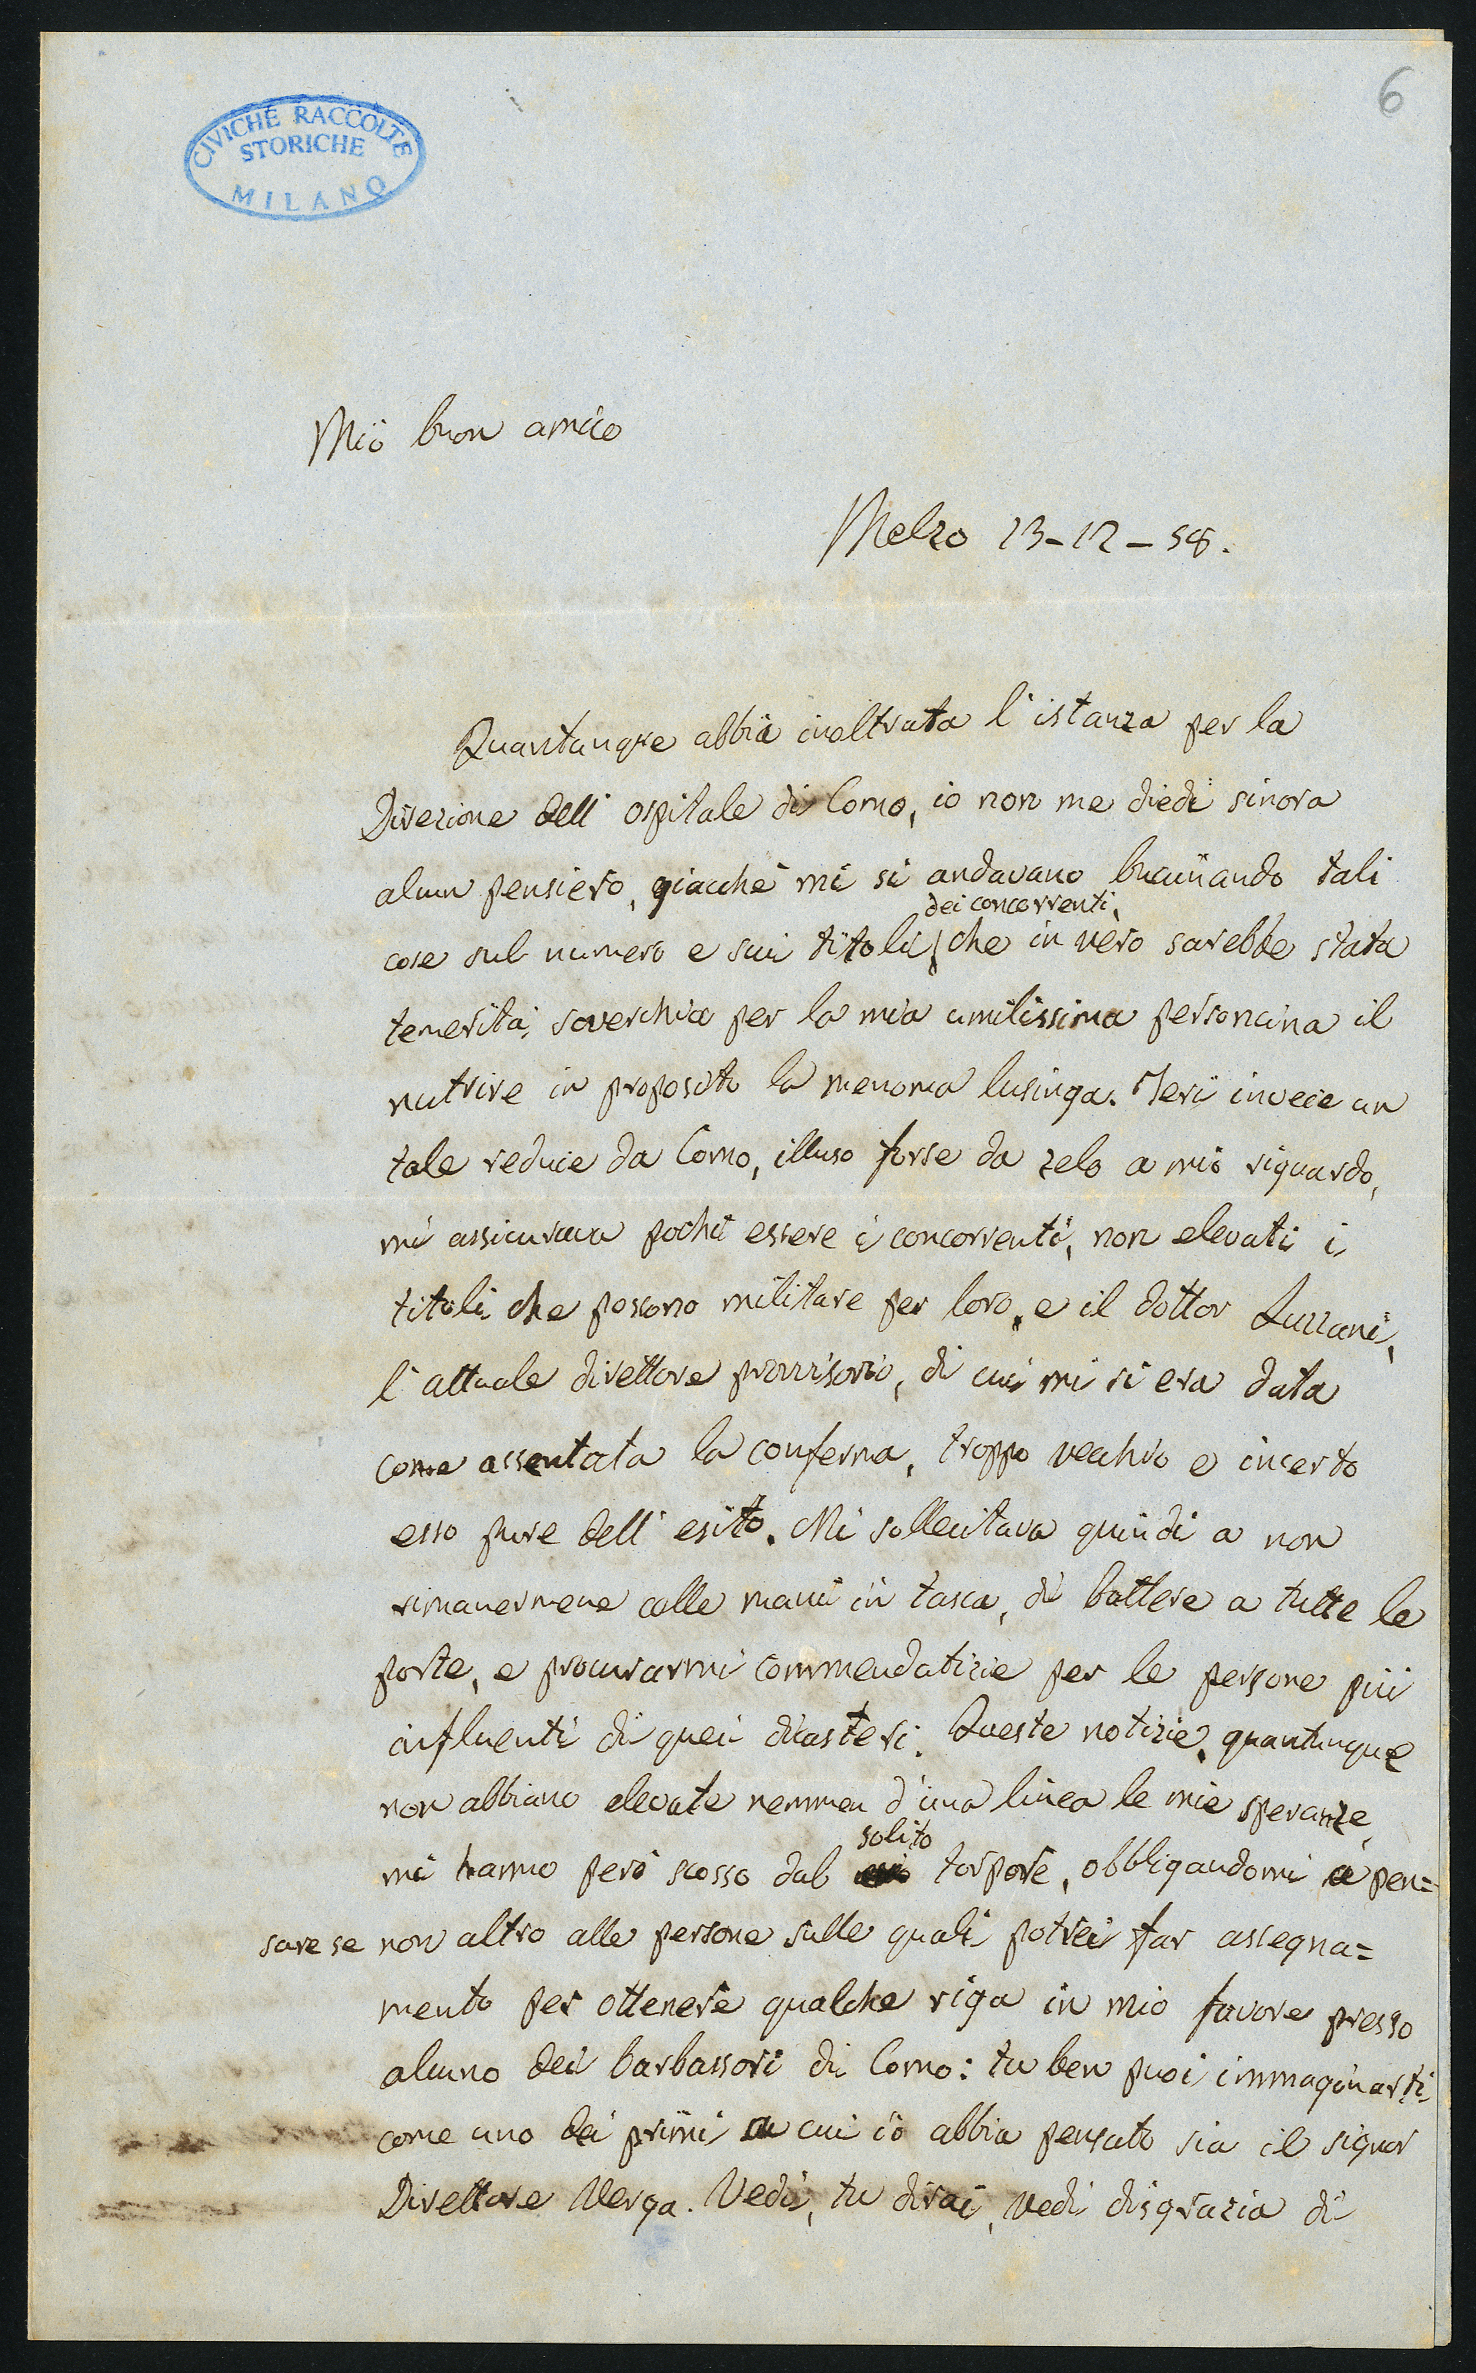 6
CIVICHE RACCOLTE
STORICHE
MILANO
Mio buon amico
Melzo 13-12-58.
Quantunque abbia inoltrata l'istanza per la
Direzione dell'ospitale di Como, io non me diedi sinora
alcun pensiero, giacchè mi si andavano bucinando tali
dei concorrenti,
cose sul numero e sui titoli che in vero sarebbe stata
temerità soverchia per la mia umilissima personcina il
nutrire in proposito la menoma lusinga. Ieri invece un
tale reduce da Como, illuso forse da zelo a mio riguardo,
mi assicurava pochi essere i concorrenti, non elevati i
titoli che possono militare per loro, e il dottor Luzzani,
l'attuale direttore provvisorio, di cui mi si era data
come assentata la conferma, troppo vecchio e incerto
esso pure dell'esito. Mi sollecitava quindi a non
rimanermene colle mani in tasca, di battere a tutte le
porte, e procurarmi commendatizie per le persone più
influenti di quei dicasteri. Queste notizie, quantunque
non abbiano elevate nemmen d'una linea le mie speranze,
solito
mi hanno però scosso dal torpore, obbligandomi a pen=
sare se non altro alle persone sulle quali potrei far assegna=
mento per ottenere qualche riga in mio favore presso
alcuno dei barbassori di Como: tu ben puoi immaginarti
come uno dei primi a cui io abbia pensato sia il signor
Direttore Verga. Vedi, tu dirai, vedi disgrazia di